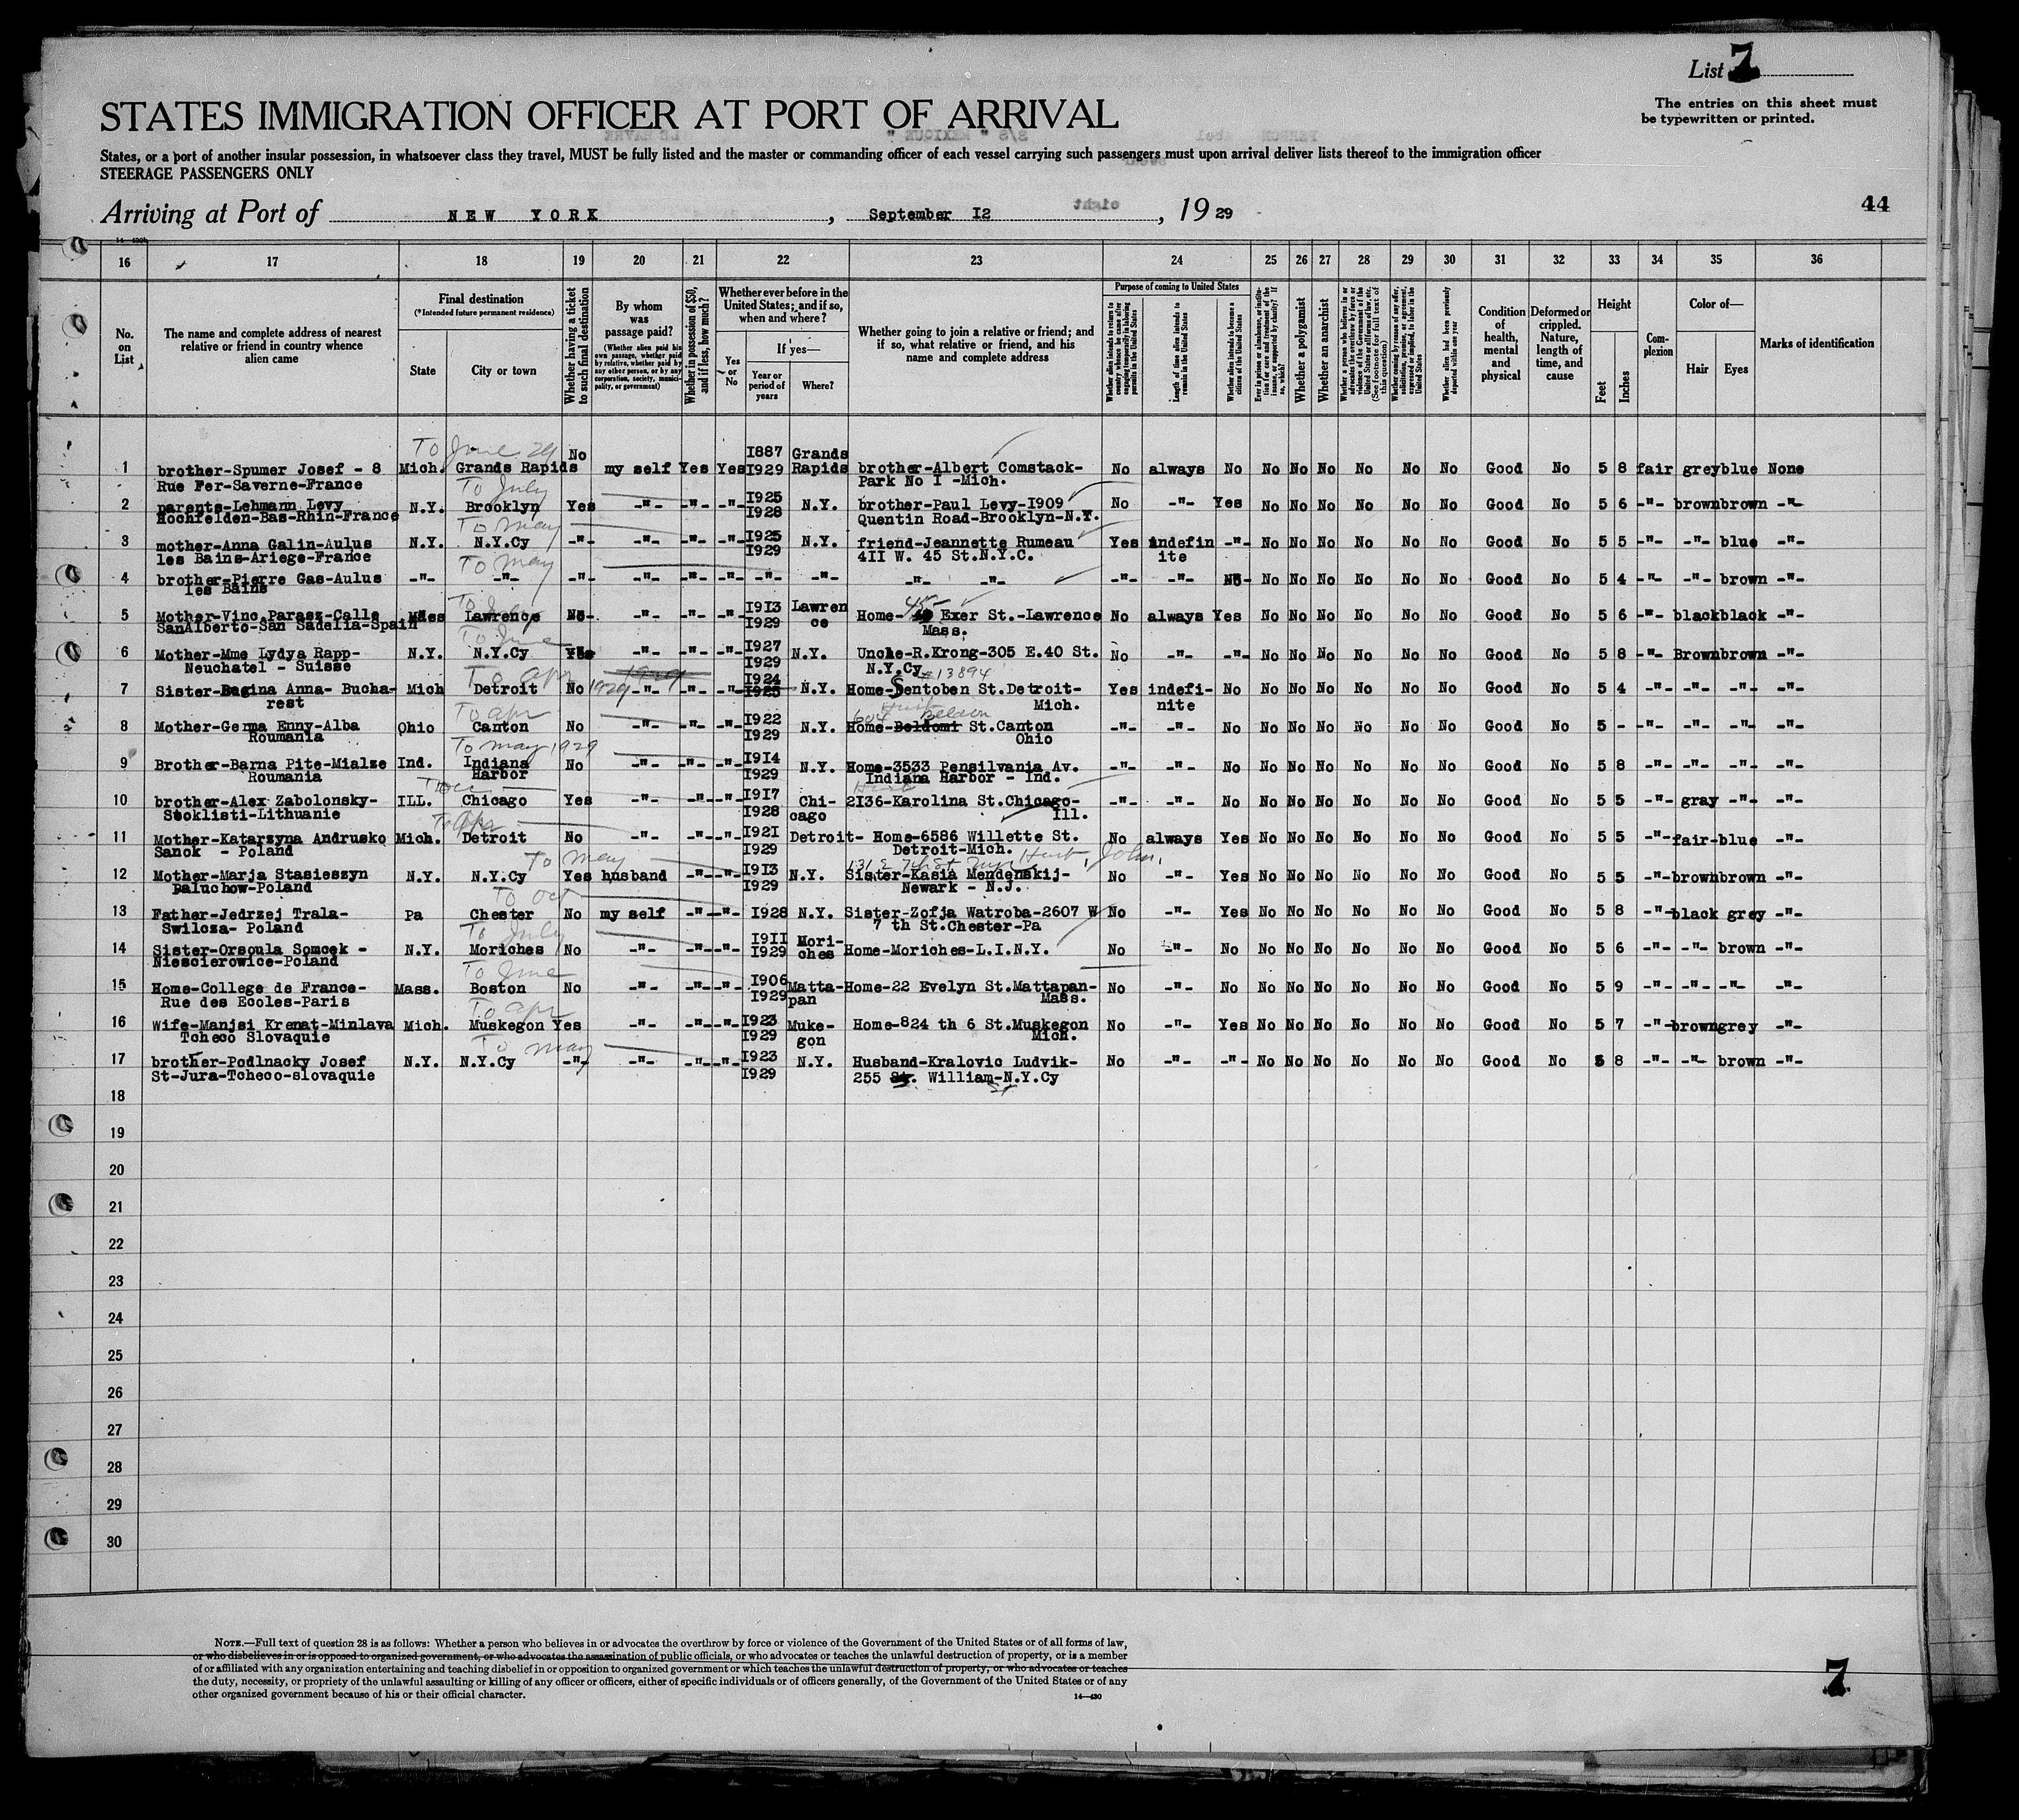 List 7
The entries on this sheet must
be typewritten or printed.
STATES IMMIGRATION OFFICER AT PORT OF ARRIVAL
States, or a port of another insular possession, in whatsoever class they travel, MUST be fully listed and the master or commanding officer of each vessel carrying such passengers must upon arrival deliver lists thereof to the immigration officer
STEERAGE PASSENGERS ONLY
Arriving at Port of NEW YORK, September I2, 19 29
44
16 17 18 19 20 21 22 23 24 25 26 27 28 29 30 31 32 33 34 35 36
No. on List
The name and complete address of nearest relative or friend in country whence alien came
Final destination
(*Intended future permanent residence)
State
City or town
Whether having a ticket to such final destination
By whom was passage paid?
(Whether alien paid his own passage, whether paid by relative, whether paid by any other person, or by any corporation, society, municipality, or government)
Whether in possession of $50, and if less, how much?
Whether ever before in the United States; and if so, when and where?
Yes or No
If yes—
Year or period of years
Where?
Whether going to join a relative or friend; and if so, what relative or friend, and his name and complete address
Purpose of coming to United States
Length of time alien intends to remain in the United States
Whether alien intends to become a citizen of the United States
Whether a polygamist
Whether an anarchist
Condition of health, mental and physical
Deformed or crippled. Nature, length of time, and cause
Height
Feet
Inches
Complexion
Color of—
Hair
Eyes
Marks of identification
To June 29 No I887 Grands
1 brother-Spumer Josef - 8 Mich. Grands Rapids my self Yes Yes I929 Rapids brother-Albert Comstack- No always No No No No No No No Good No 5 8 fair grey blue None
Rue Fer-Saverne-France Park No I -Mich.
To July
2 parents-Lehmann Levy N.Y. Brooklyn Yes -"- -"- -"- I925 N.Y. brother-Paul Levy-I909 No -"- Yes No No No No No No Good No 5 6 -"- brown brown -"-
Hochfelden-Bas-Rhin-France I928 Quentin Road-Brooklyn-N.Y.
To may
3 mother-Anna Galin-Aulus N.Y. N.Y.Cy -"- -"- -"- -"- I925 N.Y. friend-Jeannette Rumeau Yes indefin -"- No No No No No No Good No 5 5 -"- -"- blue -"-
les Bains-Ariege-France I929 4II W. 45 St.N.Y.C. ite
To may
4 brother-Pierre Gas-Aulus -"- -"- -"- -"- -"- -"- -"- -"- -"- -"- -"- -"- No No No No No No No Good No 5 4 -"- -"- brown -"-
les Bains
45
5 Mother-Vinc.Parasz-Calle Mass Lawrence No -"- -"- -"- I9I3 Lawren Home- Exer St.-Lawrence No always Yes No No No No No No Good No 5 6 -"- black black -"-
SanAlberto-San Sadelia-Spain I929 ce Mass.
To June
6 Mother-Mme Lydya Rapp- N.Y. N.Y.Cy Yes -"- -"- -"- I927 N.Y. Uncle-R.Krong-305 E.40 St. No -"- -"- No No No No No No Good No 5 8 -"- Brown brown -"-
Neuchatel - Suisse I929 N.Y.Cy
To apr 1929 I924 #13894
7 Sister-Bagina Anna- Bucha- Mich Detroit No 1929 -"- -"- -"- I925 N.Y. Home-Sentoben St.Detroit- Yes indefi- No No No No No No No Good No 5 4 -"- -"- -"- -"-
rest Mich. nite
To apr 604 Belden
8 Mother-Germa Enny-Alba Ohio Canton No -"- -"- -"- I922 N.Y. Home-Beldomi St.Canton -"- -"- No No No No No No No Good No 5 - -"- -"- -"- -"-
Roumania I929 Ohio
To may 1929
9 Brother-Barna Pite-Mialze Ind. Indiana No -"- -"- -"- I9I4 N.Y. Home-3533 Pensilvania Av. -"- -"- No No No No No No No Good No 5 8 -"- -"- -"- -"-
Roumania Harbor I929 Indiana Harbor - Ind.
10 brother-Alex Zabolonsky- ILL. Chicago Yes -"- -"- -"- I9I7 Chi- 2I36-Karolina St.Chicago- -"- -"- No No No No No No No Good No 5 5 -"- gray -"- -"-
Stoklisti-Lithuanie I928 cago Ill.
To Apr
11 Mother-Katarzyna Andrusko Mich. Detroit No -"- -"- -"- I92I Detroit- Home-6586 Willette St. No always Yes No No No No No No Good No 5 5 -"- fair-blue -"-
Sanok - Poland I929 Detroit-Mich.
To may 131 E 7th St Husb, John,
12 Mother-Marja Stasieszyn N.Y. N.Y.Cy Yes husband -"- -"- I9I3 N.Y. Sister-Kasia Mendenskij- No -"- Yes No No No No No No Good No 5 5 -"- brown brown -"-
Paluchow-Poland I929 Newark - N.J.
To oct
13 Father-Jedrzej Trala- Pa Chester No my self -"- -"- I928 N.Y. Sister-Zofja Watroba-2607 W No -"- Yes No No No No No No Good No 5 8 -"- black grey -"-
Swilcza- Poland 7 th St.Chester-Pa
To July
14 Sister-Orsoula Somcek - N.Y. Moriches No -"- -"- -"- I9II Mori- Home-Moriches-L.I.N.Y. No -"- No No No No No No No Good No 5 6 -"- -"- brown -"-
Niescierowice-Poland I929 ches
To June
15 Home-College de France- Mass. Boston No -"- -"- -"- I906 Matta- Home-22 Evelyn St.Mattapan- No -"- No No No No No No No Good No 5 9 -"- -"- -"- -"-
Rue des Ecoles-Paris I929 pan Mass.
To apr
16 Wife-Manjsi Krenat-Minlava Mich. Muskegon Yes -"- -"- -"- I923 Muke- Home-824 th 6 St.Muskegon No -"- Yes No No No No No No Good No 5 7 -"- brown grey -"-
Tcheco Slovaquie I929 gon Mich.
To may
17 brother-Podlnacky Josef N.Y. N.Y.Cy -"- -"- -"- -"- I923 N.Y. Husband-Kralovic Ludvik- No -"- -"- No No No No No No Good No 5 8 -"- -"- brown -"-
St-Jura-Tcheco-slovaquie I929 255 William-N.Y.Cy
St
18
19
20
21
22
23
24
25
26
27
28
29
30
NOTE.—Full text of question 28 is as follows: Whether a person who believes in or advocates the overthrow by force or violence of the Government of the United States or of all forms of law,
or who disbelieves in or is opposed to organized government, or who advocates the assassination of public officials, or who advocates or teaches the unlawful destruction of property, or is a member
of or affiliated with any organization entertaining and teaching disbelief in or opposition to organized government or which teaches the unlawful destruction of property, or who advocates or teaches
the duty, necessity, or propriety of the unlawful assaulting or killing of any officer or officers, either of specific individuals or of officers generally, of the Government of the United States or of any
other organized government because of his or their official character.
14—430
7